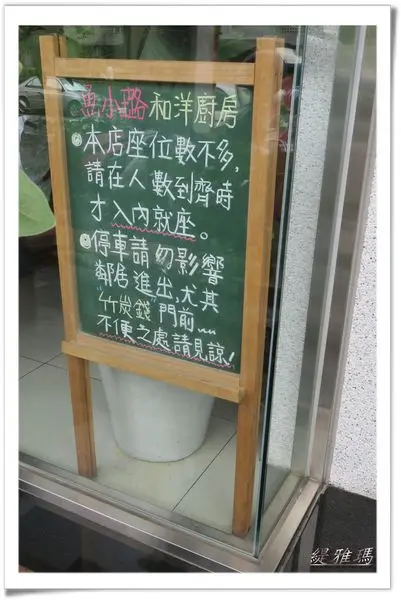 魚小璐 和洋廚房
本店座位數不多,
請在人數到齊時
才入內就座。
停車請勿影響
鄰居進出,尤其
"竹炭錢"門前~~
不便之處請見諒!
緹雅瑪